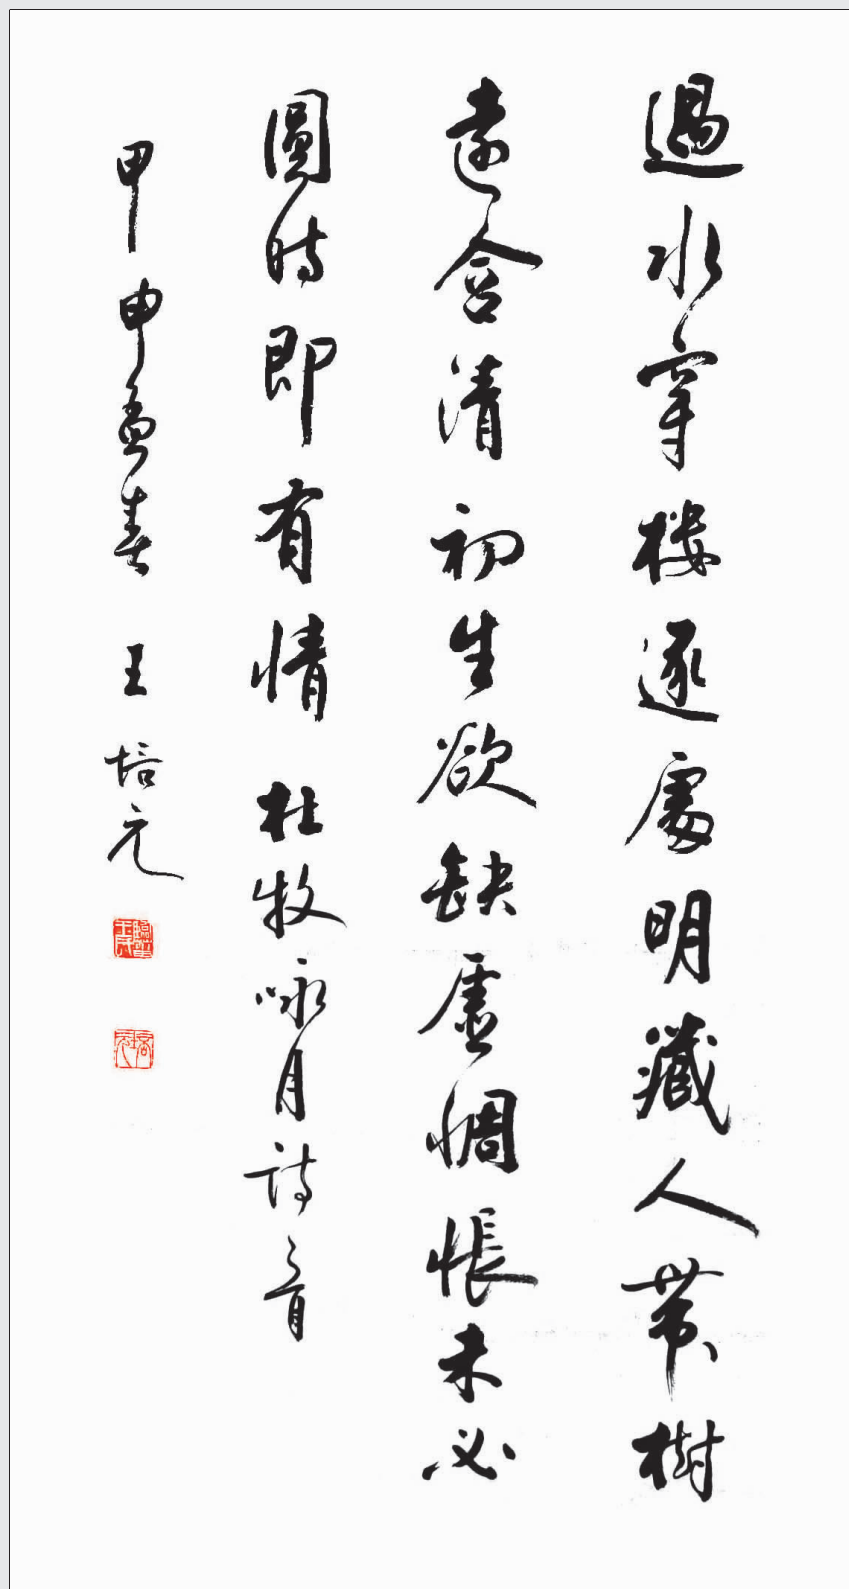 過水穿樓逐處明藏人帶樹
遠含清初生欲缺虛惆悵未必
圓時即有情 杜牧咏月詩一首
甲申孟春 王培元